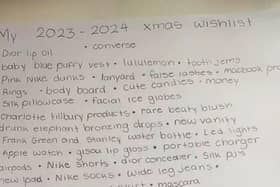 My 2023 - 2024 xmas wishlist
Dior lip oil • converse
baby blue puffy vest • lululemon • tooth gems
Pink Nike dunks • lanyard • false lashes • macbook pro
Rings • body board • cute candles • money
Silk pillowcase • facial ice globes
Charlotte tilbury products • rare beaty blush
drunk elephant bronzing drops • new vanity
Frank Green and Stanley water bottle • Led lights
Apple watch • gisou lip gloss • portable charger
airpods • Nike shorts • dior concealer • Silk pjs
new Ipad • Nike socks • wide leg jeans •
mascara